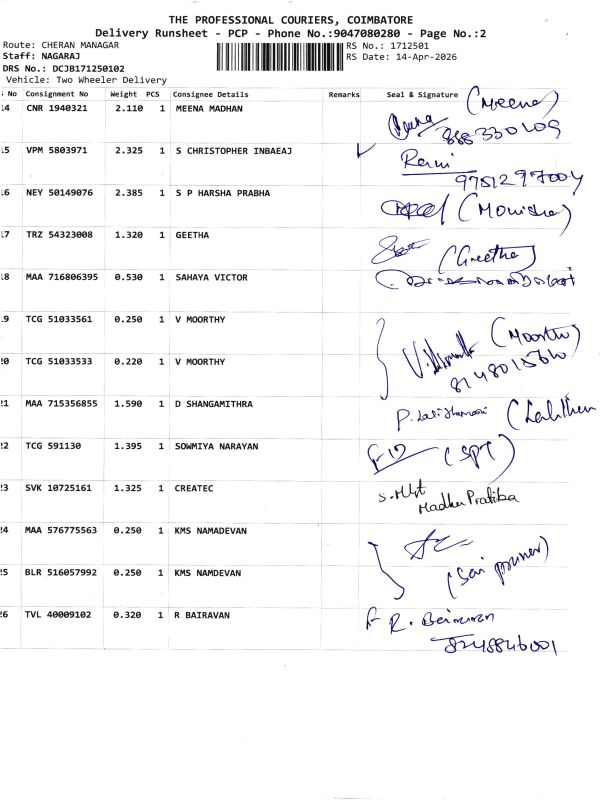 THE PROFESSIONAL COURIERS, COIMBATORE
Delivery Runsheet - PCP - Phone No.:9047080280 - Page No.:2
Route: CHERAN MANAGAR RS No.: 1712501
Staff: NAGARAJ RS Date: 14-Apr-2026
DRS No.: DCJB171250102
Vehicle: Two Wheeler Delivery
No Consignment No Weight PCS Consignee Details Remarks Seal & Signature
14 CNR 1940321 2.110 1 MEENA MADHAN (Meena)
15 VPM 5803971 2.325 1 S CHRISTOPHER INBAEAJ Rani
9751297004
16 NEY 50149076 2.385 1 S P HARSHA PRABHA (Monisha)
17 TRZ 54323008 1.320 1 GEETHA (Geetha)
18 MAA 716806395 0.530 1 SAHAYA VICTOR
19 TCG 51033561 0.250 1 V MOORTHY (Moorthy)
20 TCG 51033533 0.220 1 V MOORTHY
21 MAA 715356855 1.590 1 D SHANGAMITHRA
22 TCG 591130 1.395 1 SOWMIYA NARAYAN
23 SVK 10725161 1.325 1 CREATEC
Madhu Pratiba
24 MAA 576775563 0.250 1 KMS NAMADEVAN
25 BLR 516057992 0.250 1 KMS NAMDEVAN
26 TVL 40009102 0.320 1 R BAIRAVAN R. Bairavan
8248846001